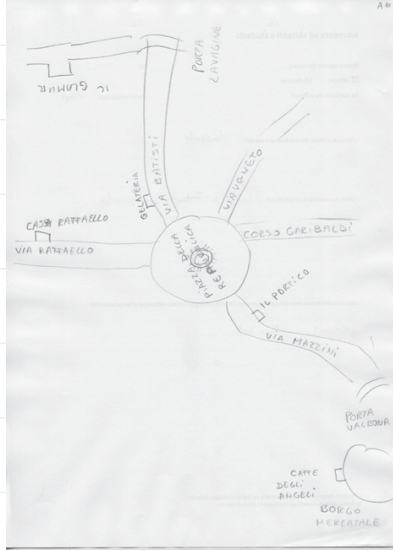 PORTA
LAVAGINE
IL GLAMUR
VIA BATISTI
GELATERIA
VIA V. VENETO
CASA RAFFAELLO
VIA RAFFAELLO
PIAZZA DELLA
REPUBBLICA
CORSO GARIBALDI
IL PORTICO
VIA MAZZINI
PORTA
VALBONA
CAFFE
DEGLI
ANGELI
BORGO
MERCATALE